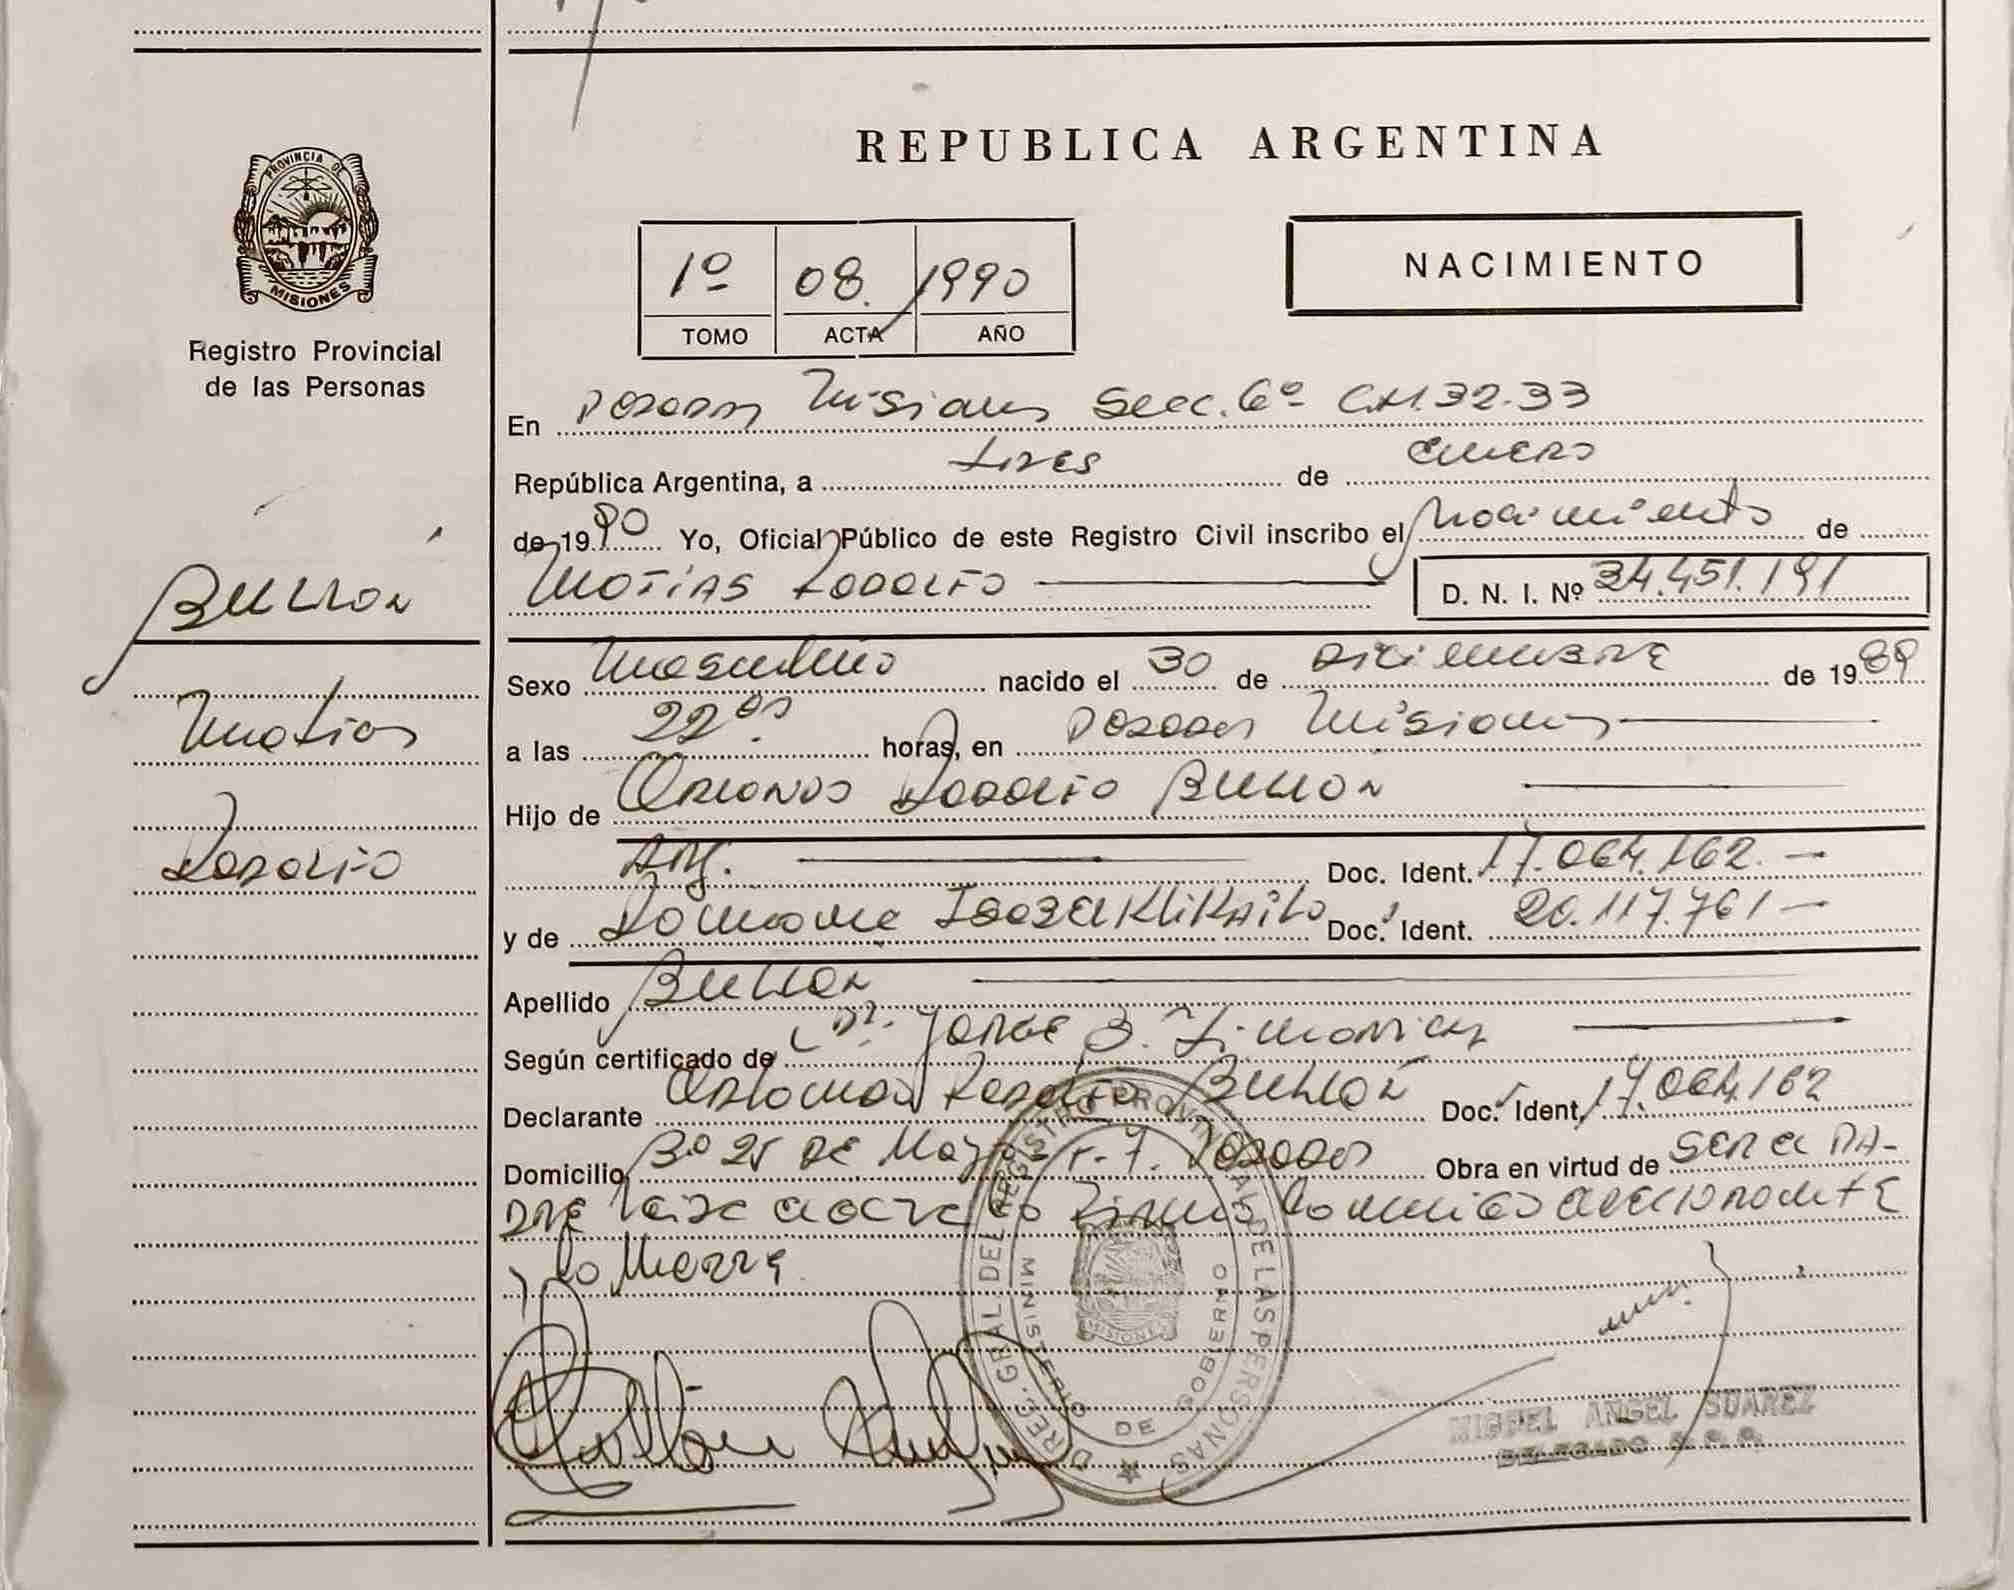 PROVINCIA DE
MISIONES
Registro Provincial
de las Personas
Bullon
Matias
Rodolfo
REPUBLICA ARGENTINA
1º 08. 1990
TOMO ACTA AÑO
NACIMIENTO
En Posadas Misiones Secc. 6º CH. 32-33
República Argentina, a tres de enero
de 1990 Yo, Oficial Público de este Registro Civil inscribo el nacimiento de
Matias Rodolfo D. N. I. Nº 34.451.191
Sexo Masculino nacido el 30 de diciembre de 1989
a las 22 horas, en Posadas Misiones
Hijo de Orlando Rodolfo Bullon
Arg. Doc. Ident. 17.064.162.
y de Doc. Ident. 20.117.761
Apellido Bullon
Según certificado de Dr. Jorge B.
Declarante Orlando Rodolfo Bullon Doc. Ident. 17.064.162
Domicilio Bº 25 de Mayo Posadas Obra en virtud de ser el pa-
dre
la Madre.
DIREC. GRAL. DEL REGISTRO PROVINCIAL DE LAS PERSONAS
MINISTERIO DE GOBIERNO
MISIONES
MIGUEL ANGEL SUAREZ
DELEGADO